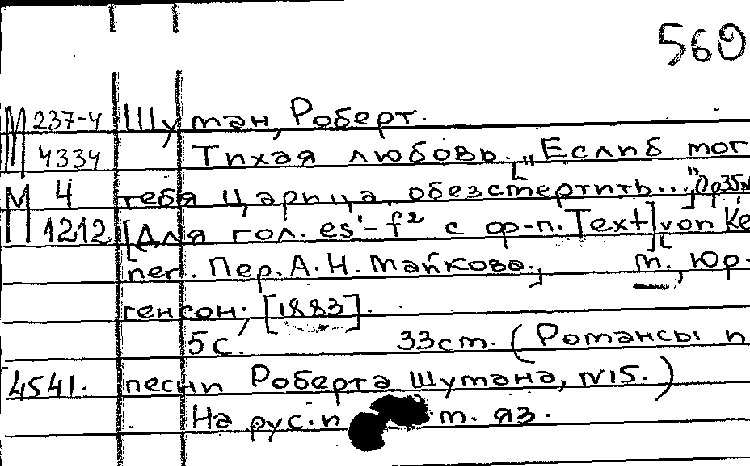 569
М 237-4 Шуман, Роберт.
4334 Тихая любовь. ["Еслиб мог
М 4 тебя царица, обезсмертить..." Op35№
1212 [Для гол. es'-f² с ф-п. Text] von Ke
ner. Пер. А.Н. Майкова. м., Юр-
генсон, [1883].
5 с. 33 см. (Романсы и
4541. песни Роберта Шумана, №15.)
На рус. и м. яз.